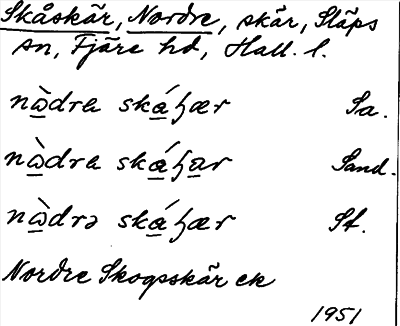 Skåskär, Nordre, skär, Släps
sn, Fjäre hd, Hall. l.
nὼ̲dra ská̲ɧær Sa.
nὼ̲dra ská̲ɧa̲r Sand.
nὼ̲drə ská̲ɧær St.
Nordre Skogsskär ek
1951